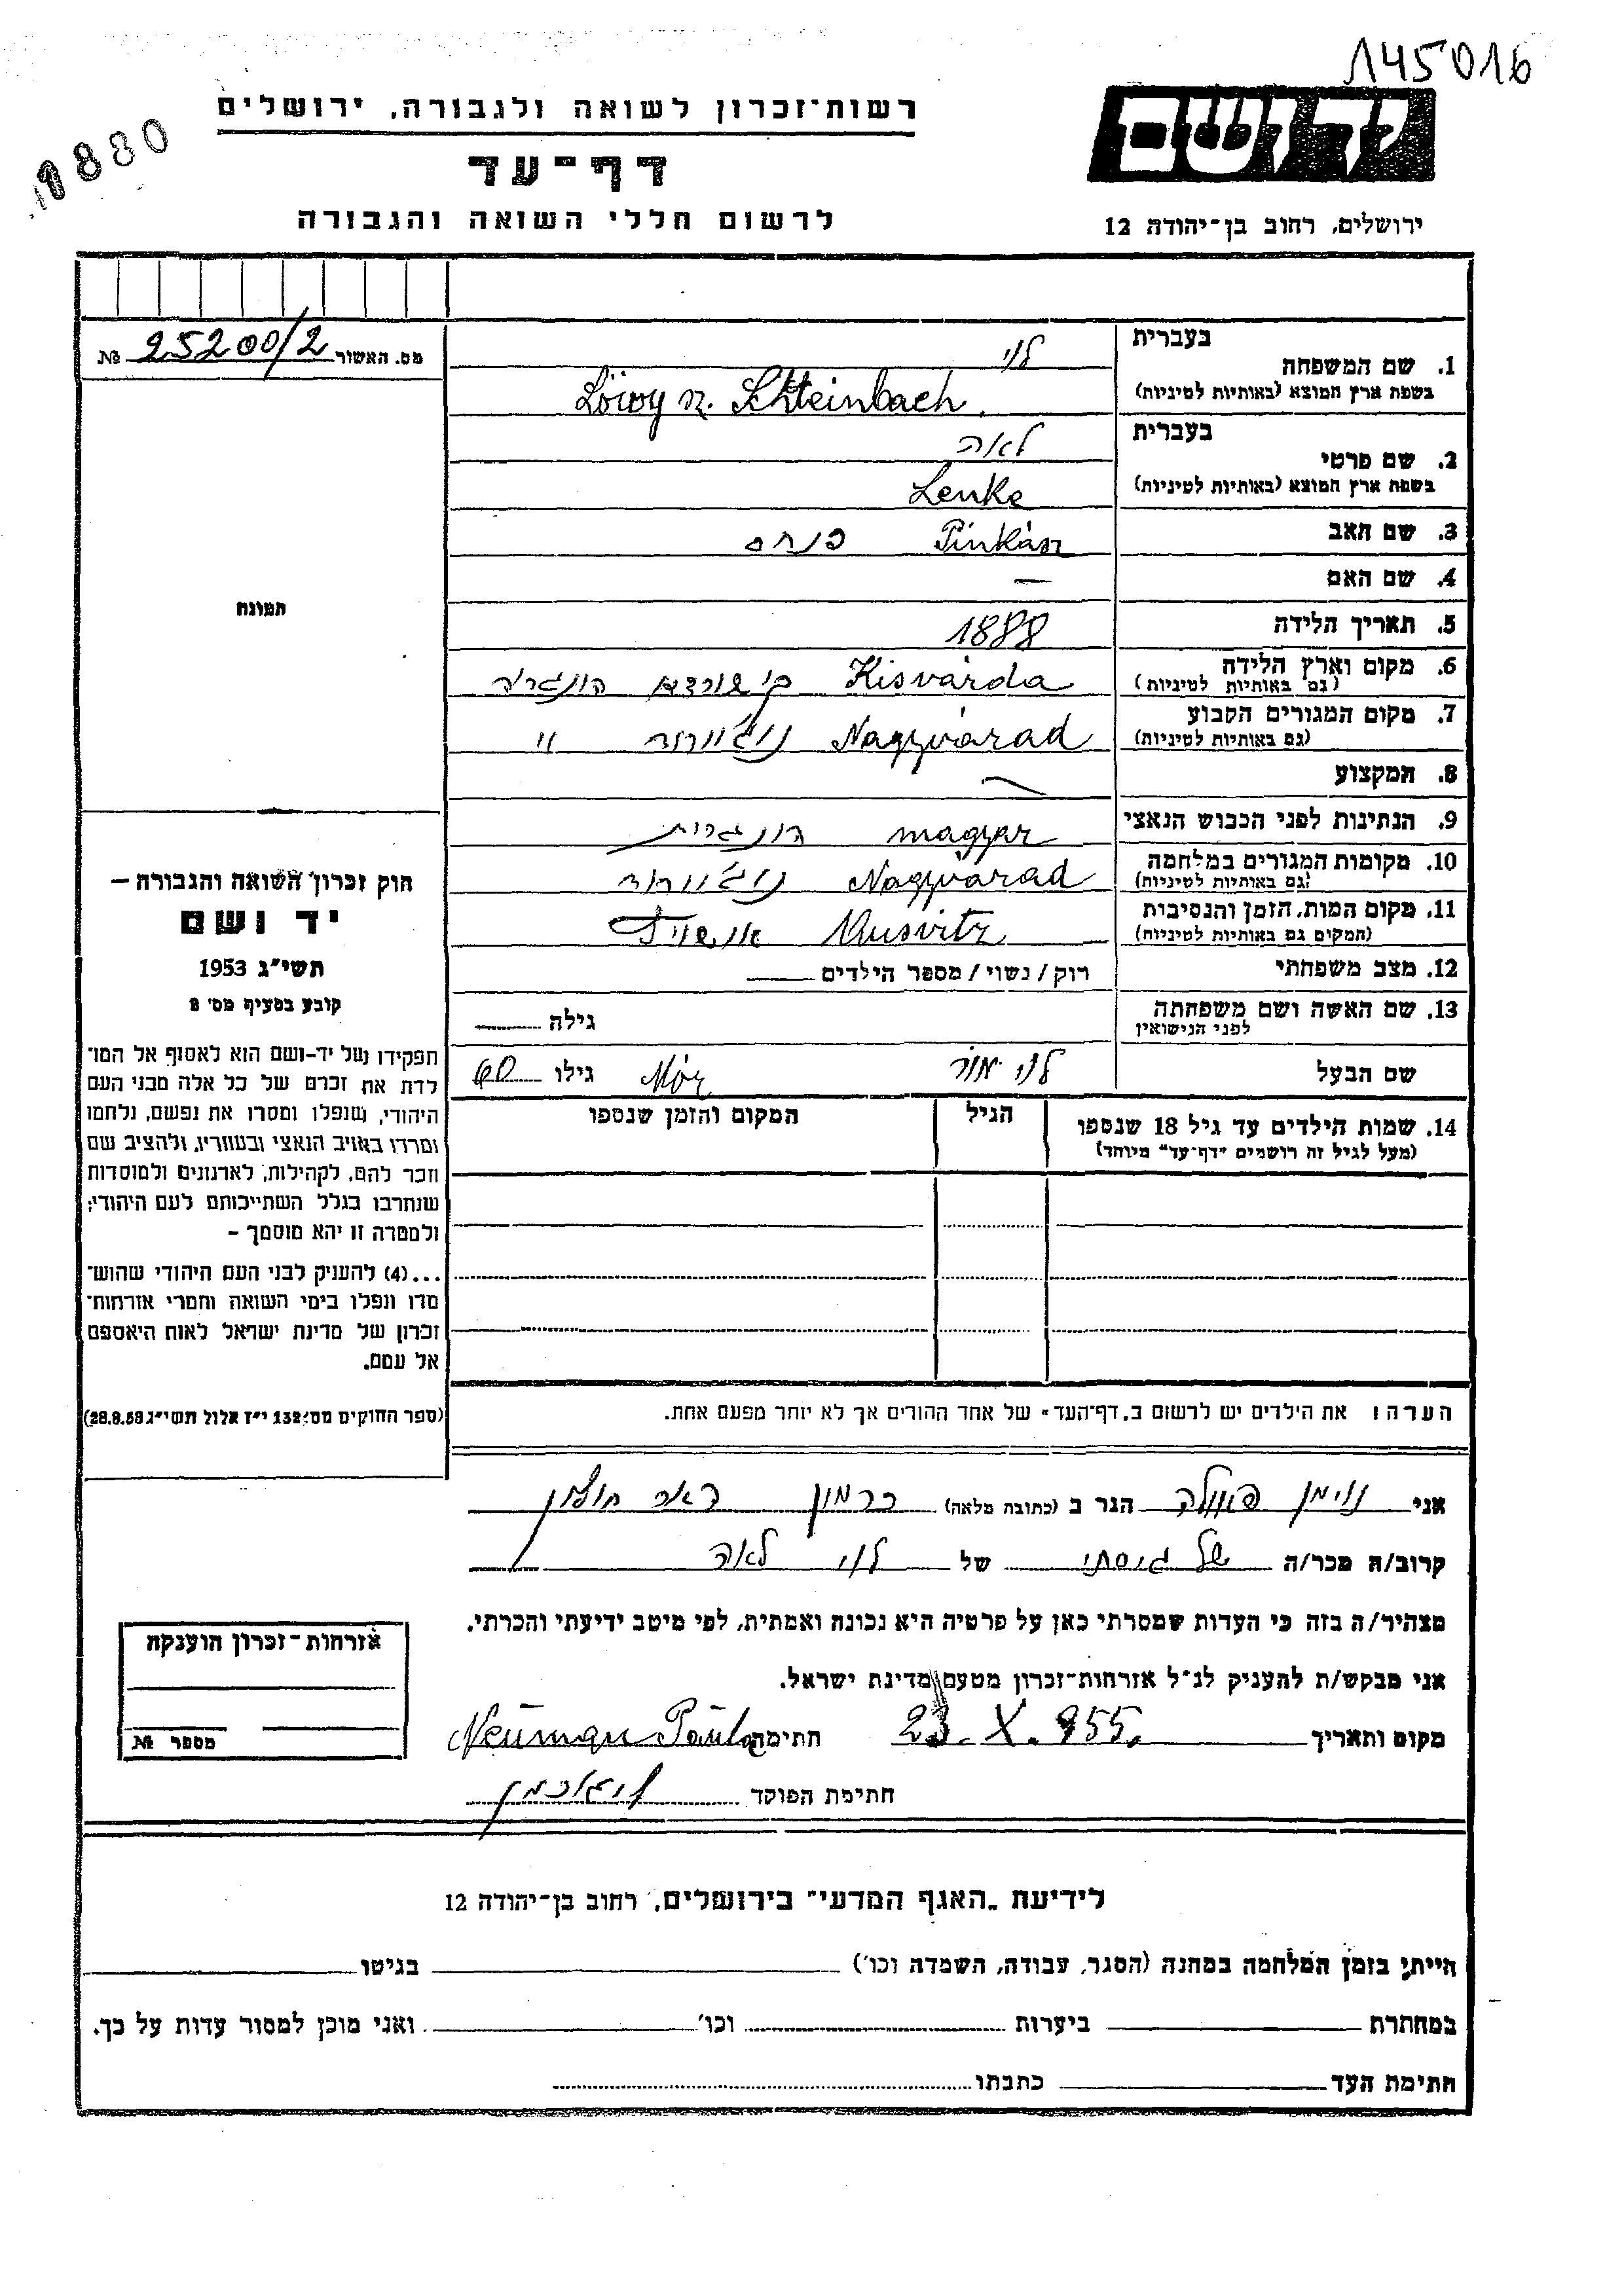 145016
יד ושם
רשות־זכרון לשואה ולגבורה, ירושלים
דף־עד
לרשום חללי השואה והגבורה
ירושלים, רחוב בן־יהודה 12
מס. האשור № 25200/2
1. שם המשפחה בעברית לוי
בשפת ארץ המוצא (באותיות לטיניות) Löwy sz. Schteinbach
2. שם פרטי בעברית לאה
בשפת ארץ המוצא (באותיות לטיניות) Lenke
3. שם האב Pinkász פנחס
4. שם האם —
5. תאריך הלידה 1888
6. מקום וארץ הלידה Kisvárda קישוורדא הונגריה
(גם באותיות לטיניות)
7. מקום המגורים הקבוע Nagyvárad "
(גם באותיות לטיניות)
8. המקצוע —
9. הנתינות לפני הכבוש הנאצי magyar הונגרית
10. מקומות המגורים במלחמה Nagyvárad
(גם באותיות לטיניות)
11. מקום המות, הזמן והנסיבות Ausvitz
(המקום גם באותיות לטיניות)
12. מצב משפחתי רוק/נשוי/מספר הילדים
13. שם האשה ושם משפחתה לפני הנישואין גילה
שם הבעל לוי מור Mór גילו 60
14. שמות הילדים עד גיל 18 שנספו הגיל המקום והזמן שנספו
(מעל לגיל זה רושמים "דף־עד" מיוחד)
הערה: את הילדים יש לרשום ב"דף־העד" של אחד ההורים אך לא יותר מפעם אחת.
תמונה
חוק זכרון השואה והגבורה —
יד ושם
תשי"ג 1953
קובע בסעיף מס' 2
תפקידו של יד-ושם הוא לאסוף אל המו־
לדת את זכרם של כל אלה מבני העם
היהודי, שנפלו ומסרו את נפשם, נלחמו
ומרדו באויב הנאצי ובעוזריו, ולהציב שם
וזכר להם, לקהילות, לארגונים ולמוסדות
שנחרבו בגלל השתייכותם לעם היהודי;
ולמטרה זו יהא מוסמך –
...(4) להעניק לבני העם היהודי שהוש־
מדו ונפלו בימי השואה והמרי אזרחות־
זכרון של מדינת ישראל לאות היאספם
אל עמם.
(ספר החוקים מס' 132 י"ז אלול תשי"ג 28.8.53)
אני נוימן פאולה הגר ב (כתובת מלאה)
קרוב/ה מכר/ה של גיסתי של לוי לאה
מצהיר/ה בזה כי העדות שמסרתי כאן על פרטיה היא נכונה ואמתית, לפי מיטב ידיעתי והכרתי.
אני מבקש/ת להעניק לנ"ל אזרחות־זכרון מטעם מדינת ישראל.
מקום ותאריך 23. X. 955. חתימה Neuman Paula
חתימת הפוקד
אזרחות־זכרון הוענקה
מספר №
לידיעת "האגף המדעי" בירושלים, רחוב בן־יהודה 12
הייתי בזמן המלחמה במחנה (הסגר, עבודה, השמדה וכו') בגיטו
במחתרת ביערות וכו' ואני מוכן למסור עדות על כך.
חתימת העד כתבתו